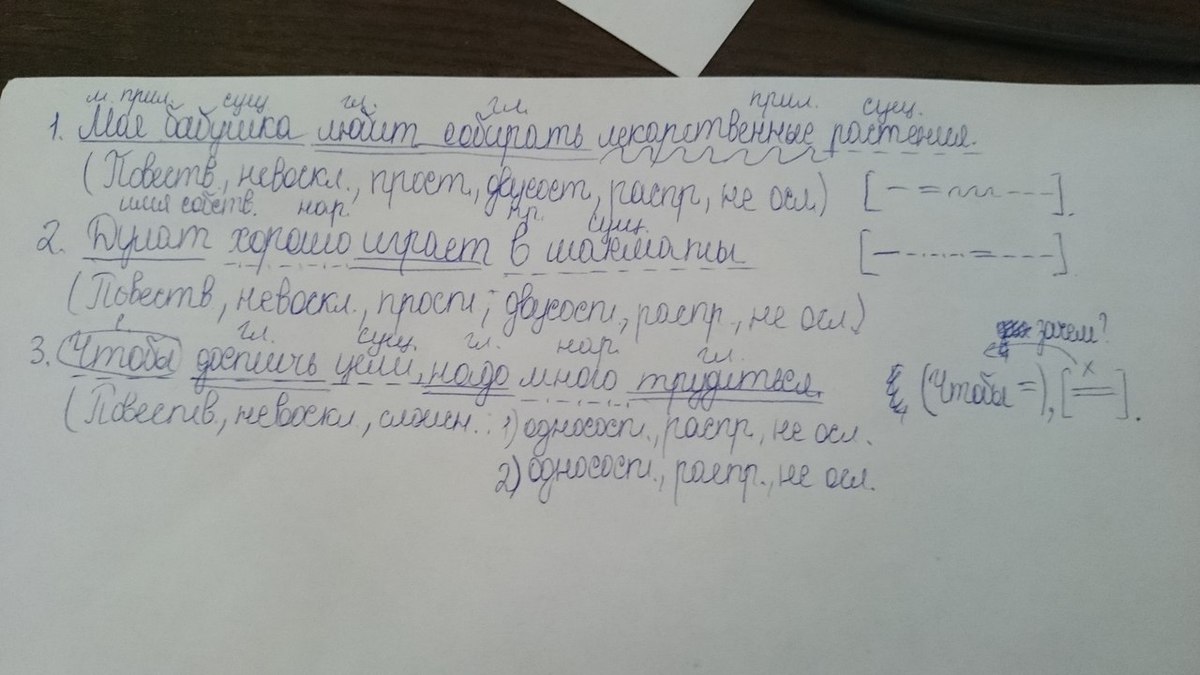 м. прил. сущ. гл. гл. прил. сущ.
1. Моя бабушка любит собирать лекарственные растения.
(Повеств., невоскл., прост., двусост., распр., не осл.) [ – = ~~~ --- ].
имя собств. нар. пр. сущ.
2. Дулат хорошо играет в шахматы [ – -.-.- = --- ].
(Повеств., невоскл., прост., двусост., распр., не осл.)
гл. сущ. гл. нар. гл. зачем?
3. Чтобы достичь цели, надо много трудиться. (Чтобы =), [ х = ].
(Повеств., невоскл., сложн.: 1) односост., распр., не осл.
2) односост., распр., не осл.